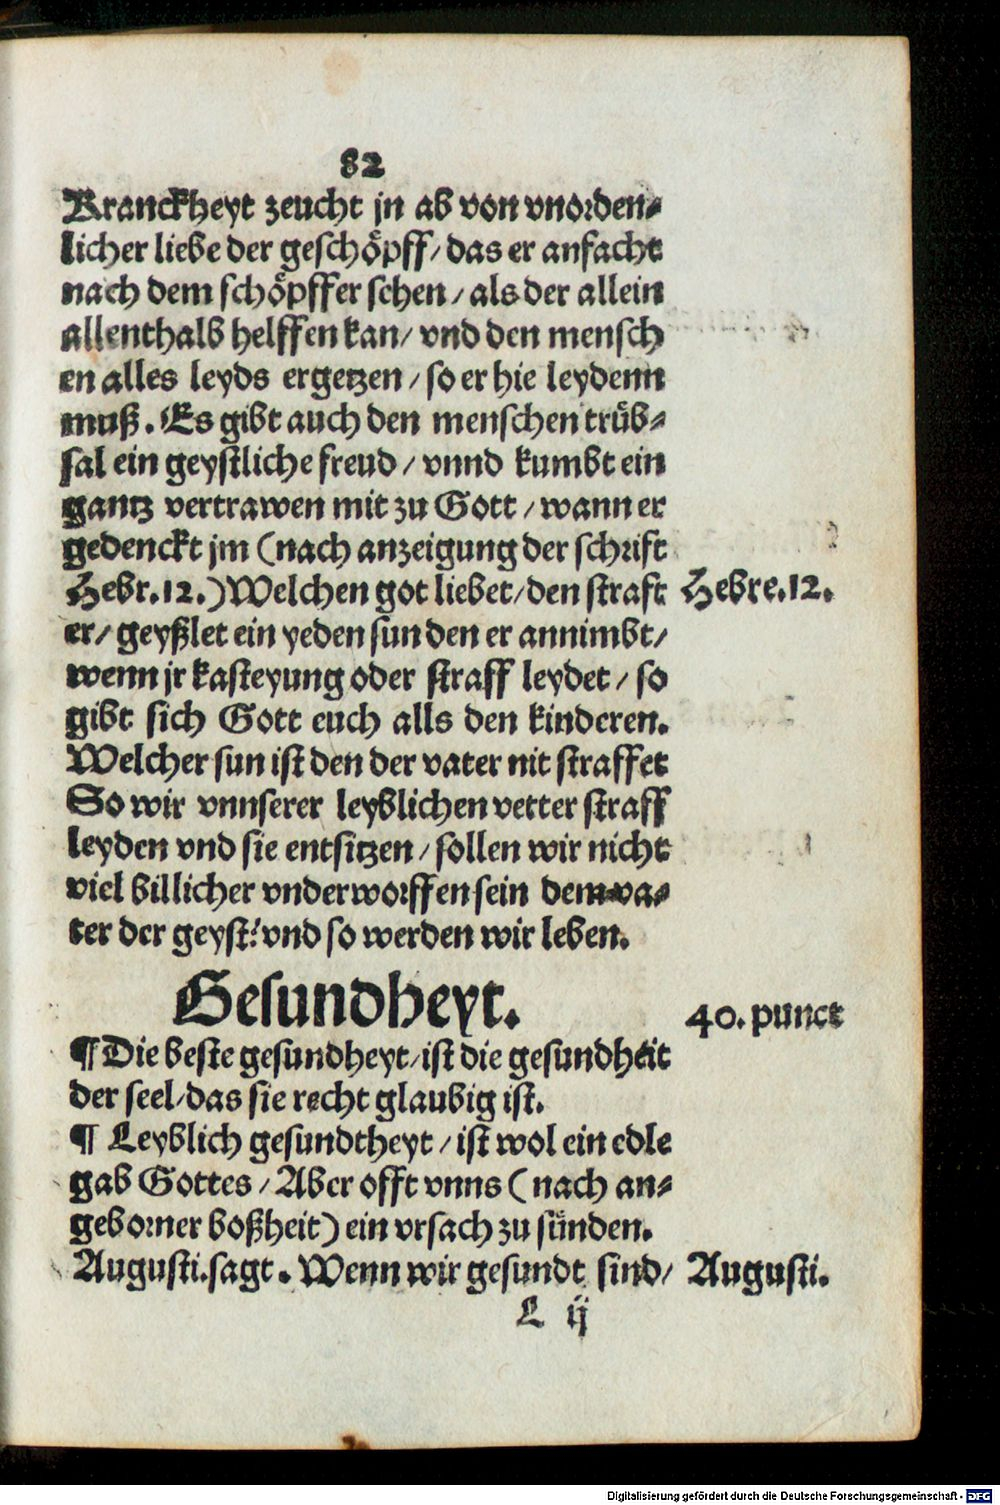 82
Kranckheyt zeucht jn ab von vnorden-
licher liebe der geschöpff/ das er anfacht
nach dem schöpffer schen/ als der allein
allenthalb helffen kan/ vnd den mensch
en alles leyds ergetzen/ so er hie leydenn
muß. Es gibt auch den menschen trüb-
sal ein geystliche freud/ vnnd kumbt ein
gantz vertrawen mit zu Gott/ wann er
gedenckt jm (nach anzeigung der schrift
Hebr. 12.) Welchen got liebet/ den straft Hebre. 12.
er/ geyßlet ein yeden sun den er annimbt/
wenn jr kasteyung oder straff leydet/ so
gibt sich Gott euch alls den kinderen.
Welcher sun ist den der vater nit straffet
So wir vnnserer leyblichen vetter straff
leyden vnd sie entsitzen/ sollen wir nicht
viel billicher vnderworffen sein dem va-
ter der geyst? vnd so werden wir leben.
Gesundheyt. 40. punct
¶ Die beste gesundheyt/ ist die gesundheit
der seel/ das sie recht glaubig ist.
¶ Leyblich gesundtheyt/ ist wol ein edle
gab Gottes/ Aber offt vnns (nach an-
geborner boßheit) ein vrsach zu sünden.
Augusti. sagt. Wenn wir gesundt sind/ Augusti.
L ij
Digitalisierung gefördert durch die Deutsche Forschungsgemeinschaft - DFG